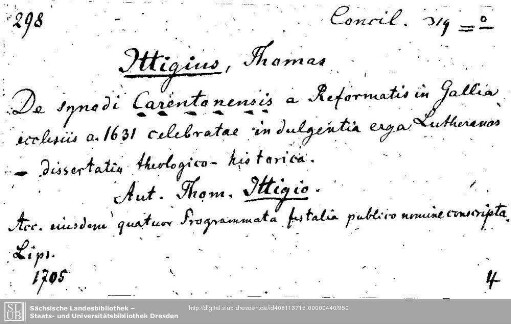 298
Concil. 319
Ittigius, Thomas
De synodi Carentonensis a Reformatis in Gallia
ecclesiis a. 1631 celebratae indulgentia erga Lutheranos
dissertatio theologico-historica.
Aut. Thom. Ittigio.
Acc. eiusdem quatuor Programmata festalia publico nomine conscripta.
Lips.
1705
4
SLUB
Sächsische Landesbibliothek –
Staats- und Universitätsbibliothek Dresden